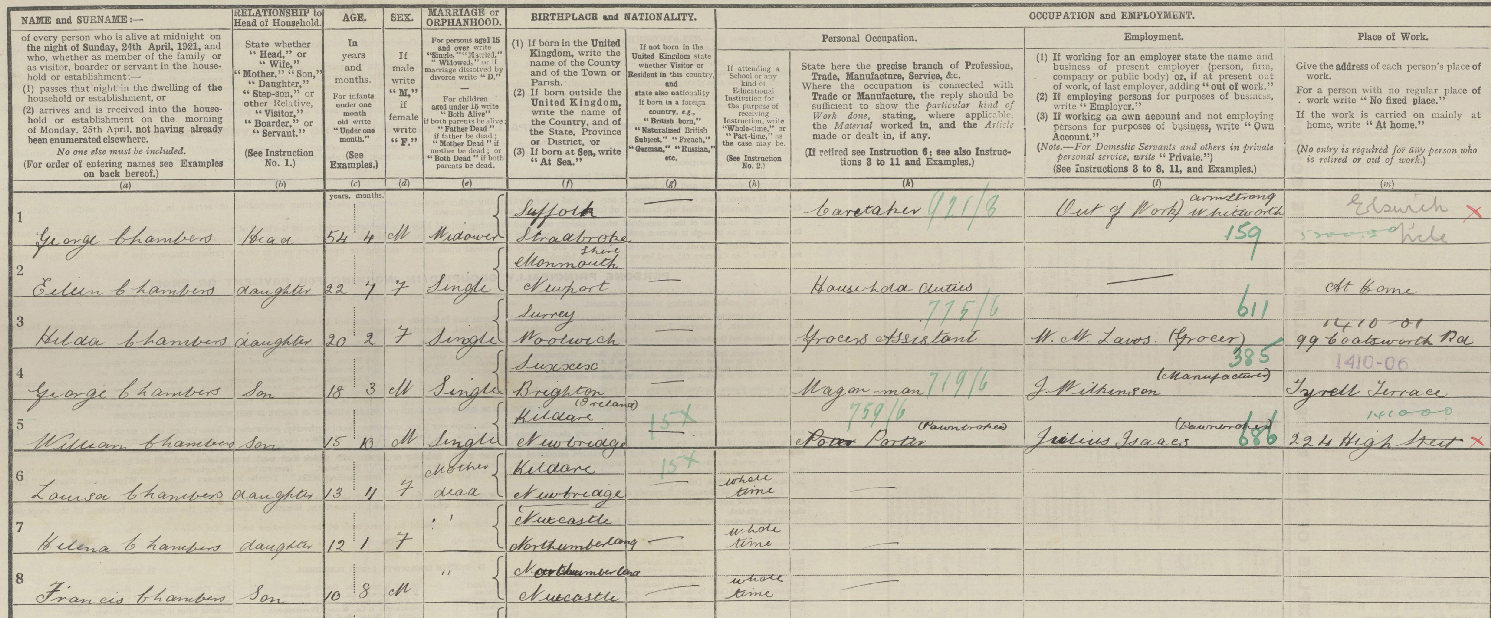 NAME and SURNAME:—
of every person who is alive at midnight on
the night of Sunday, 24th April, 1921, and
who, whether as member of the family or
as visitor, boarder or servant in the house-
hold or establishment:—
(1) passes that night in the dwelling of the
household or establishment, or
(2) arrives and is received into the house-
hold or establishment on the morning
of Monday, 25th April, not having already
been enumerated elsewhere.
No one else must be included.
(For order of entering names see Examples
on back hereof.)
(a)
RELATIONSHIP to
Head of Household.
State whether
"Head," or
"Wife,"
"Mother," "Son,"
"Daughter,"
"Step-son," or
other Relative,
"Visitor,"
"Boarder," or
"Servant."
(See Instruction
No. 1.)
(b)
AGE.
In
years
and
months.
For infants
under one
month
old write
"Under one
month."
(See
Examples.)
(c)
SEX.
If
male
write
"M,"
if
female
write
"F."
(d)
MARRIAGE or
ORPHANHOOD.
For persons aged 15
and over write
"Single," "Married,"
"Widowed," or if
marriage dissolved by
divorce write "D."
For children
aged under 15 write
"Both Alive"
if both parents be alive;
"Father Dead"
if father be dead;
"Mother Dead" if
mother be dead; or
"Both Dead" if both
parents be dead.
(e)
BIRTHPLACE and NATIONALITY.
(1) If born in the United
Kingdom, write the
name of the County
and of the Town or
Parish.
(2) If born outside the
United Kingdom,
write the name of
the Country, and of
the State, Province
or District, or
(3) If born at Sea, write
"At Sea."
(f)
If not born in the
United Kingdom state
whether Visitor or
Resident in this country,
and
state also nationality
if born in a foreign
country, e.g.,
"British born,"
"Naturalized British
Subject," "French,"
"German," "Russian,"
etc.
(g)
OCCUPATION and EMPLOYMENT.
Personal Occupation.
If attending a
School or any
kind of
Educational
Institution for
the purpose of
receiving
instruction, write
"Whole-time," or
"Part-time," as
the case may be.
(See Instruction
No. 2.)
(h)
State here the precise branch of Profession,
Trade, Manufacture, Service, &c.
Where the occupation is connected with
Trade or Manufacture, the reply should be
sufficient to show the particular kind of
Work done, stating, where applicable,
the Material worked in, and the Article
made or dealt in, if any.
(If retired see Instruction 6; see also Instruc-
tions 3 to 11 and Examples.)
(k)
Employment.
(1) If working for an employer state the name and
business of present employer (person, firm,
company or public body) or, if at present out
of work, of last employer, adding "out of work."
(2) If employing persons for purposes of business,
write "Employer."
(3) If working on own account and not employing
persons for purposes of business, write "Own
Account."
(Note.—For Domestic Servants and others in private
personal service, write "Private.")
(See Instructions 3 to 8, 11, and Examples.)
(l)
Place of Work.
Give the address of each person's place of
work.
For a person with no regular place of
work write "No fixed place."
If the work is carried on mainly at
home, write "At home."
(No entry is required for any person who
is retired or out of work.)
(m)
years. months.
1 George Chambers Head 54 4 M Widower Suffolk — Caretaker 921/8 Out of Work) Armstrong Whitworth Elswick X
Stradbroke 159
2 Eileen Chambers daughter 22 7 F Single Monmouth shire
Newport — Household duties — At Home
3 Hilda Chambers daughter 20 2 F Single Surrey 775/6 611
Woolwich — Grocers Assistant W. M. Laws. (Grocer) 1410-01
99 Coatsworth Rd
4 George Chambers Son 18 3 M Single Sussex 385 1410-06
Brighton — Wagon-man 719/6 J. Wilkinson (Manufacturer) Tyrell Terrace
5 William Chambers Son 15 10 M Single Kildare (Ireland) 15X 759/6 141000
Newbridge — Porter (Pawnbroker) Julius Isaacs (Pawnbroker) 686 224 High Street X
6 Louisa Chambers daughter 13 4 F Mother dead Kildare 15X
Newbridge — whole time —
7 Helena Chambers daughter 12 1 F " Newcastle
Northumberland — whole time —
8 Francis Chambers Son 10 8 M " Northumberland
Newcastle — whole time —